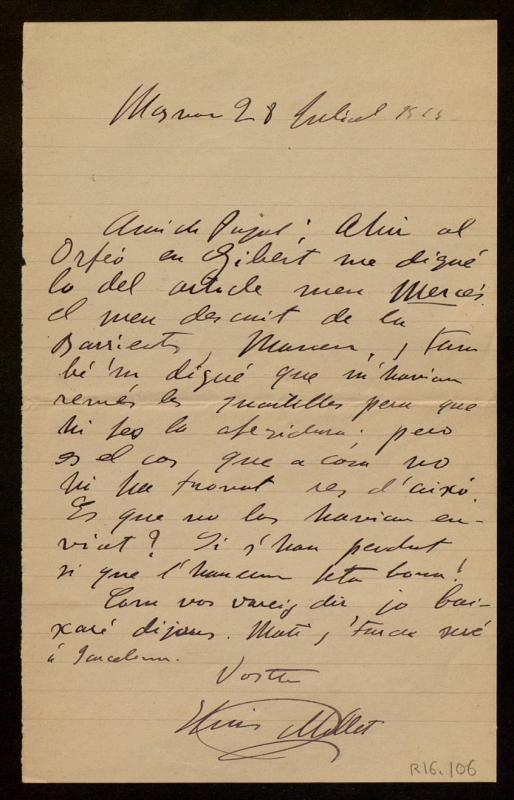 Masnou 28 Juliol 191
Amich Pujol: Ahir al
Orfeó en Gibert me digué
lo del article meu Mercés.
el meu descuit de la
Barrients, y tam
bé 'm digué que m' havian
remés les pera que
hi fes la afegidura: pero
es el cas que a casa no
hi ha trovat res d'aixó.
Es que no las havian en-
viat? Si s' han perdut
si que l' hauriam feta bona!
Com vos vareig dir jo bai-
xaré dijous. Matí y Tarde seré
á Barcelona.
Vostre
Lluis Millet
R16.106